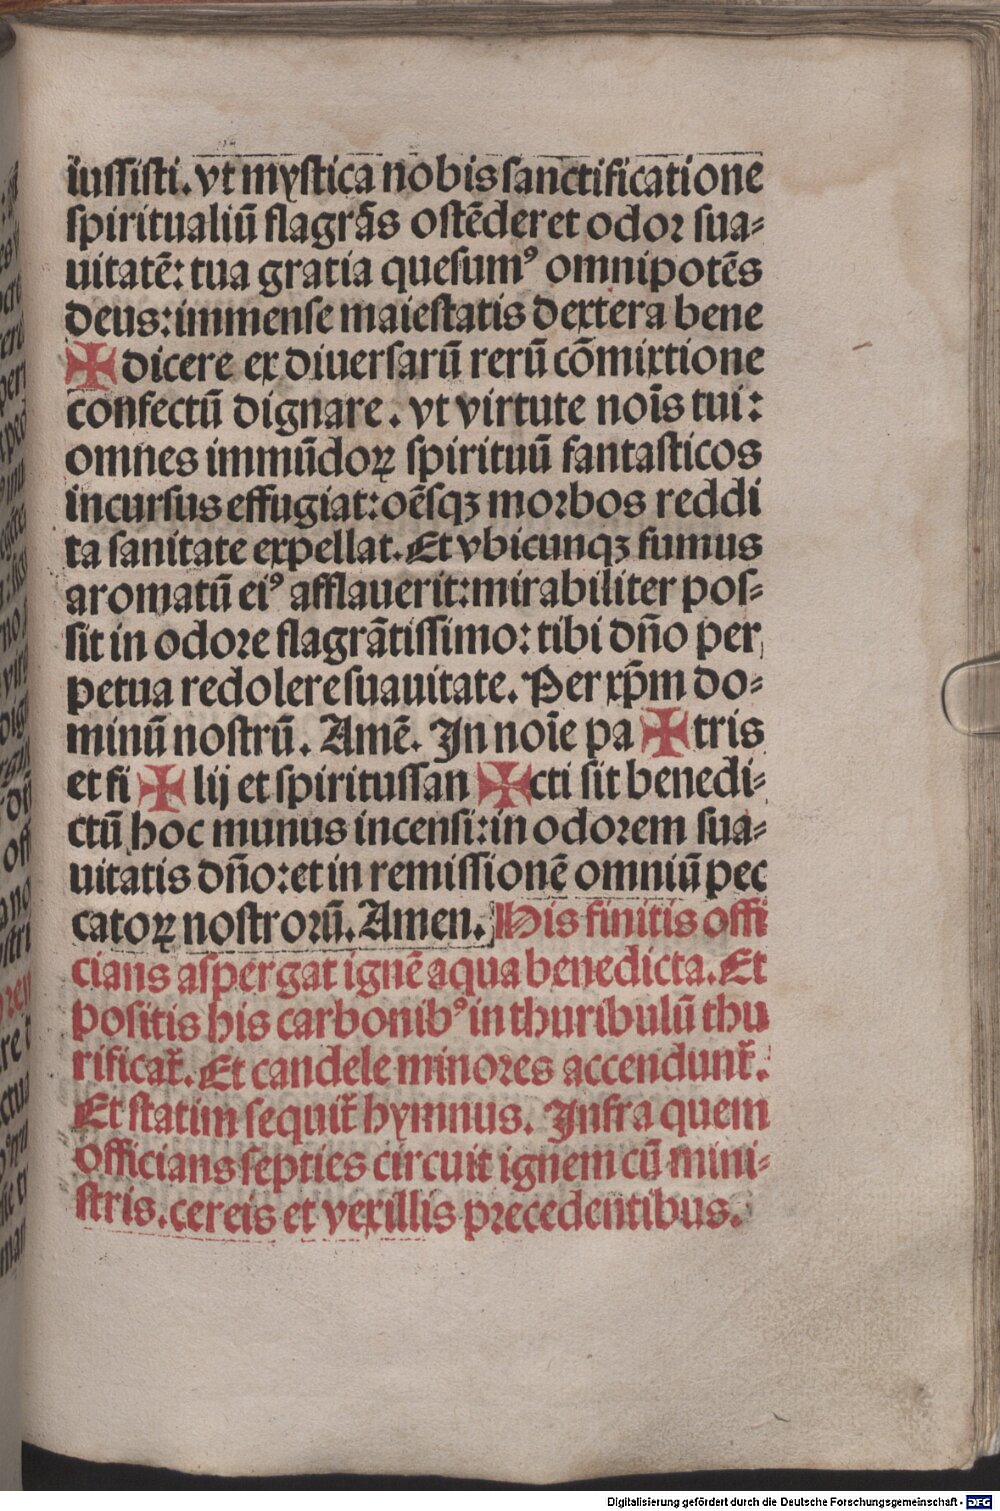 iussisti. vt mystica nobis sanctificatione
spiritualiū flagrās ostēderet odor sua-
uitatē: tua gratia quesumꝰ omnipotēs
deus: immense maiestatis dextera bene
✠ dicere ex diuersarū rerū cōmixtione
confectū dignare. vt virtute noīs tui:
omnes immūdoꝝ spirituū fantasticos
incursus effugiat: oēsqꝫ morbos reddi
ta sanitate expellat. Et vbicunqꝫ fumus
aromatū eiꝰ afflauerit: mirabiliter pos-
sit in odore flagrātissimo: tibi dño per
petua redolere suauitate. Per xp̄m do-
minū nostrū. Amē. In noīe pa ✠ tris
et fi ✠ lij et spiritussan ✠ cti sit benedi-
ctū hoc munus incensi: in odorem sua-
uitatis dño: et in remissionē omniū pec
catoꝝ nostrorū. Amen. His finitis offi
cians aspergat ignē aqua benedicta. Et
positis his carbonibꝰ in thuribulū thu
rificat̄. Et candele minores accendunt̄.
Et statim sequit̄ hymnus. Infra quem
officians septies circuit ignem cū mini-
stris. cereis et vexillis precedentibus.
Digitalisierung gefördert durch die Deutsche Forschungsgemeinschaft - DFG